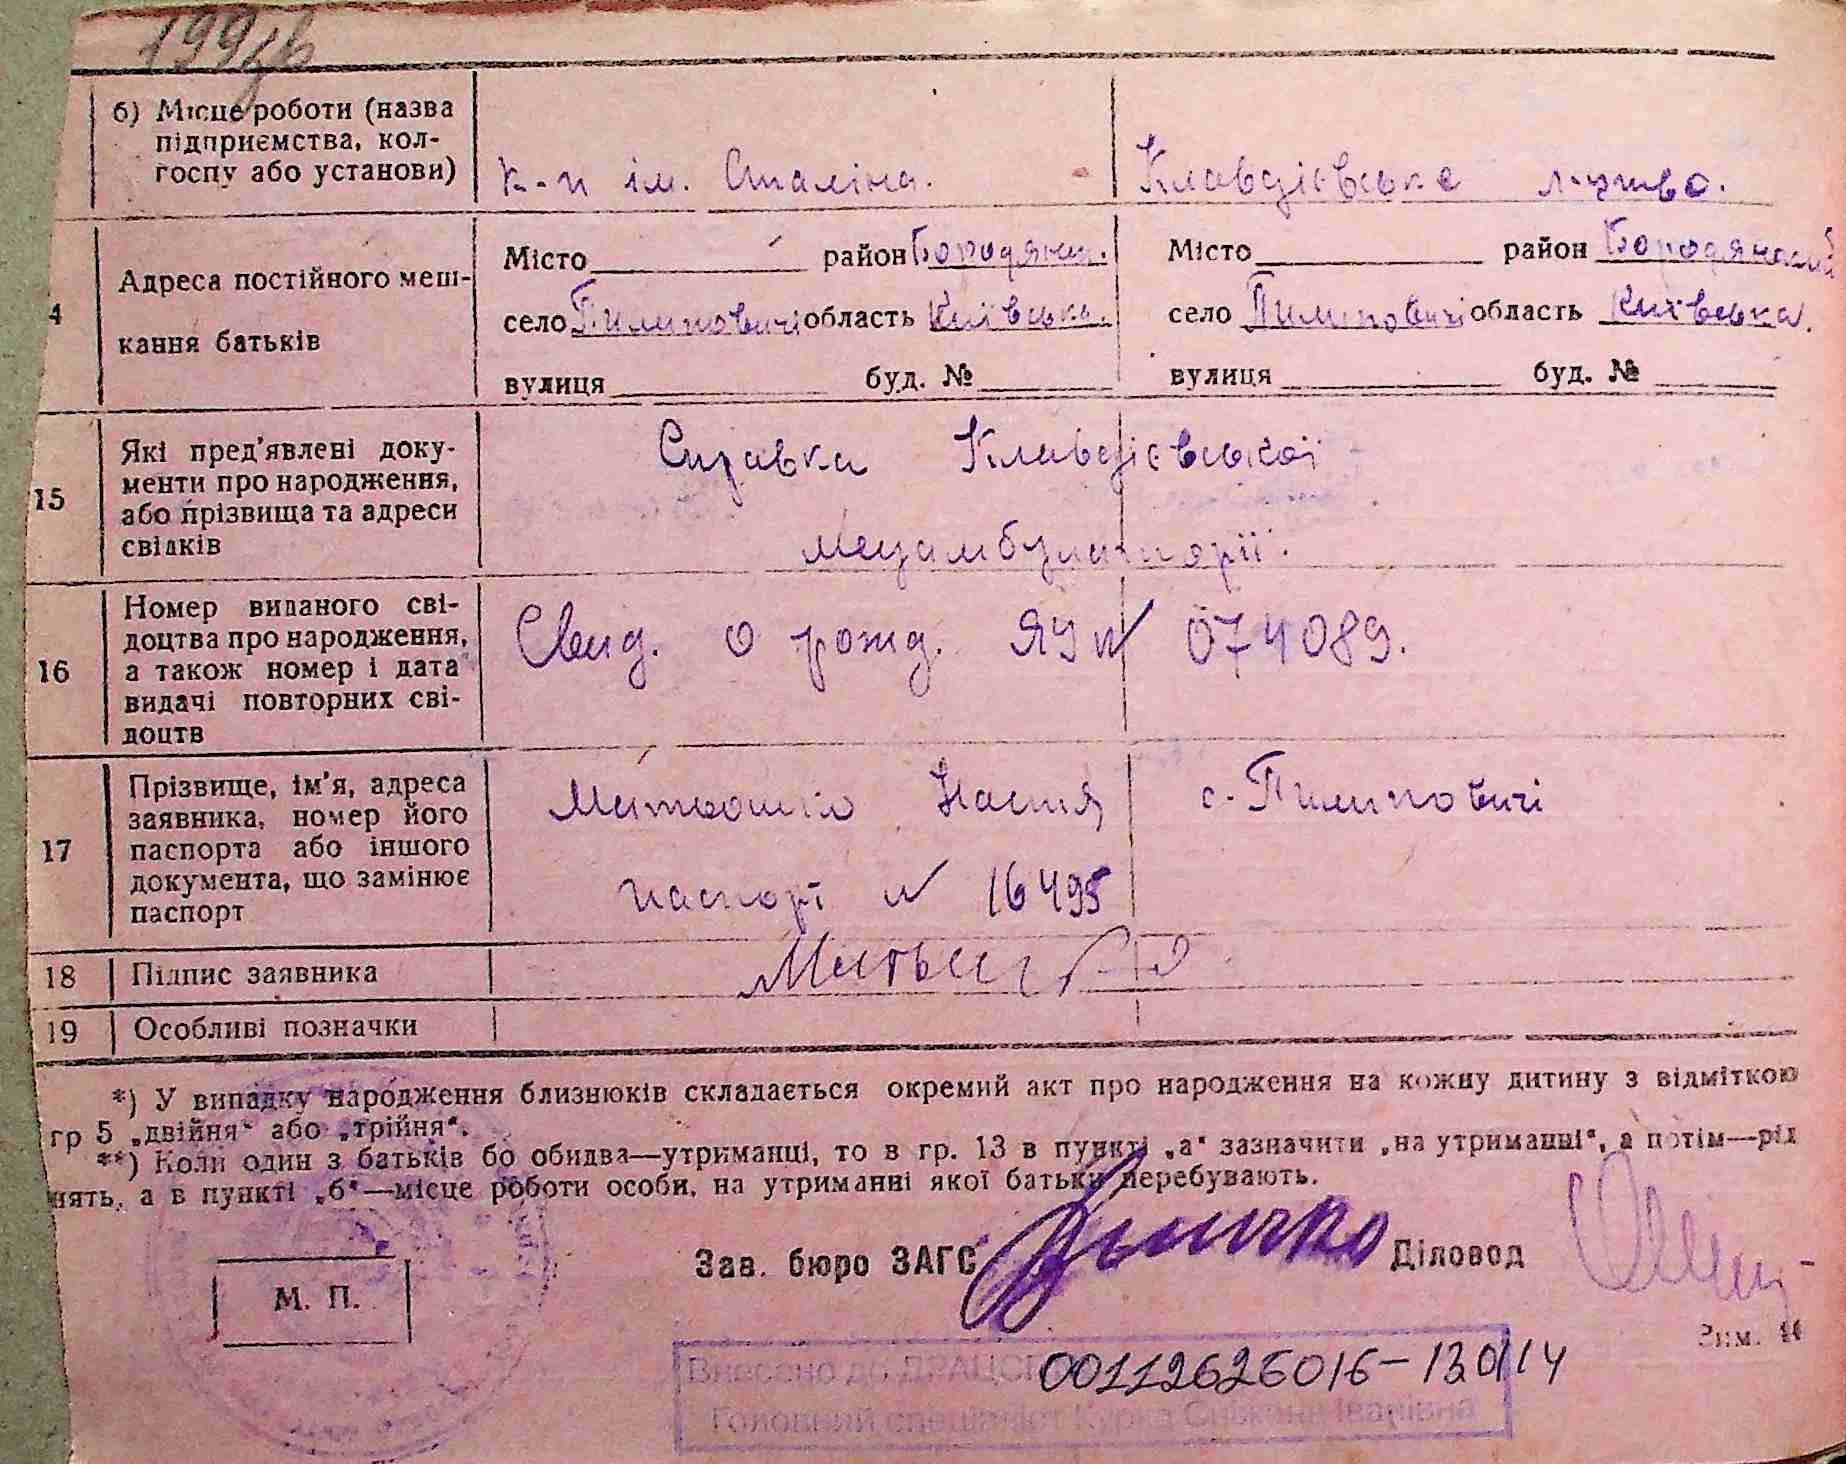 б) Місце роботи (назва
підприємства, кол-
госпу або установи)
к-п ім. Сталіна.
Клавдієвське
4
Адреса постійного меш-
кання батьків
Місто район Бородянськ.
село Пилиповичі область Київська.
вулиця буд. №
Місто район Бородянський
село Пилиповичі область Київська.
вулиця буд. №
15
Які пред'явлені доку-
менти про народження,
або прізвища та адреси
свідків
Справка Клавдієвської
медамбулаторії.
16
Номер виданого сві-
доцтва про народження,
а також номер і дата
видачі повторних сві-
доцтв
Свид. о рожд. ЯУ № 074089.
17
Прізвище, ім'я, адреса
заявника, номер його
паспорта або іншого
документа, що замінює
паспорт
Настя с. Пилиповичі
паспорт № 16495
18
Підпис заявника
19
Особливі позначки
*) У випадку народження близнюків складається окремий акт про народження на кожну дитину з відміткою
гр 5 „двійня“ або „трійня“.
**) Коли один з батьків бо обидва—утриманці, то в гр. 13 в пункті „а“ зазначити „на утриманні“, а потім—рід
нять, а в пункті „б“—місце роботи особи, на утриманні якої батьки перебувають.
М. П.
Зав. бюро ЗАГС Діловод
Зим.
Внесено до ДРАЦСГ 00112626016-130114
Головний спеціаліст Курка Сніжана Іванівна